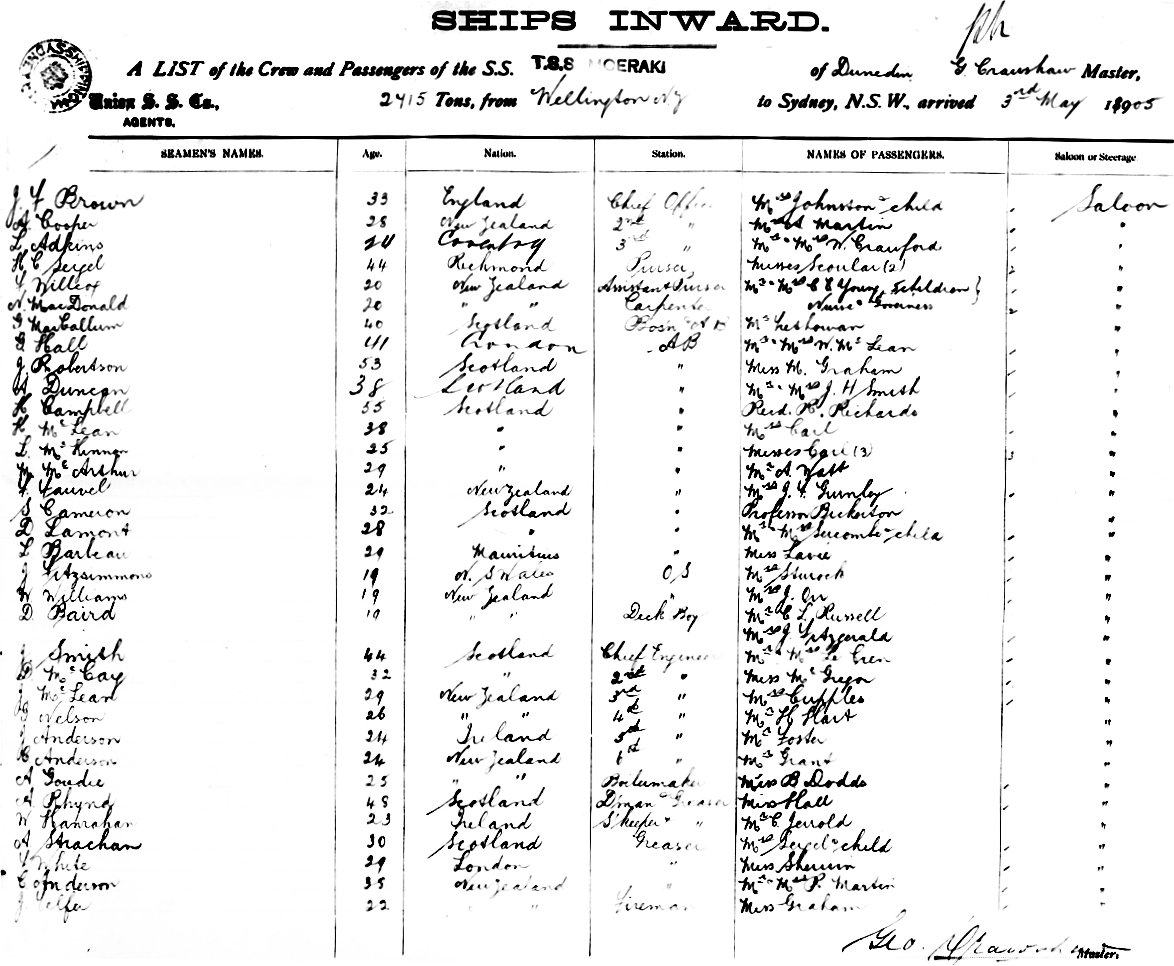 SHIPS INWARD.
A LIST of the Crew and Passengers of the S.S. T.S.S MOERAKI of Dunedin G. Crawshaw Master,
Union S. S. Co., 2415 Tons, from Wellington NZ to Sydney, N.S.W., arrived 3rd May 1905
AGENTS.
SEAMEN'S NAMES. Age. Nation. Station. NAMES OF PASSENGERS. Saloon or Steerage
J. F Brown 33 England Chief Officer Mrs Johnston & child Saloon
A. Cooper 28 New Zealand 2nd " Mrs A Martin "
L. Adkins 24 Coventry 3rd " Mr & Mrs W. Crawford "
H C Seigel 44 Richmond Purser Misses Scoular (2) "
F Willcox 20 New Zealand Assistant Purser Mr & Mrs C E Young, children } "
N. MacDonald 20 " " Carpenter Nurse & Governess "
G MacCallum 40 Scotland Bosn & A B Mr "
D Hall 41 London AB Mr & Mrs W. McLean "
J Robertson 53 Scotland " Miss M. Graham "
A. Duncan 38 Scotland " Mr & Mrs J. H Smith "
H Campbell 55 Scotland " Revd. Richards "
H McLean 38 " " Mrs Carl "
L. McKinnon 25 " " Misses Carl (3) "
McArthur 29 " " Mr A. Watt "
F Fauvel 24 New Zealand " Mrs J. F. Gurnley "
S Cameron 32 Scotland " Professor Bickerton "
D Lamont 28 " " Mr & Mrs Sercombe & child "
L Barbeau 29 Mauritius " Miss Lavee "
J Fitzsimmons 19 N. S Wales O S Mrs Sturock "
W Williams 19 New Zealand " Mrs J. Orr "
D Baird 19 " " Deck Boy Mr C L. Russell "
Mrs J Fitzgerald "
J Smith 44 Scotland Chief Engineer Mr & Mrs Le Cren "
D McCay 32 " 2nd " Miss McGregor "
J McLean 29 New Zealand 3rd " Mrs Cupples "
G Nelson 26 " " 4th " Mr H Hart "
J Anderson 24 Ireland 5th " Mr Foster "
C Anderson 24 New Zealand 6th " Mr Grant "
A Goudie 25 " " Boilermaker Miss B Dodds "
A. Rhynd 48 Scotland D'man & Greaser Miss Hall "
W Hanrahan 23 Ireland S'keeper " Mr C. Jerrold "
A Strachan 30 Scotland Greaser Mrs Seigel & child "
F White 29 London " Miss Sherwin "
C Anderson 35 New Zealand " Mr & Mrs P. Martin "
J Telfer 22 " " Fireman Miss Graham "
Geo. Crawshaw Master.